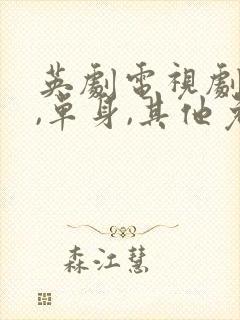 英劇電視劇
,單身,其他
森江慧